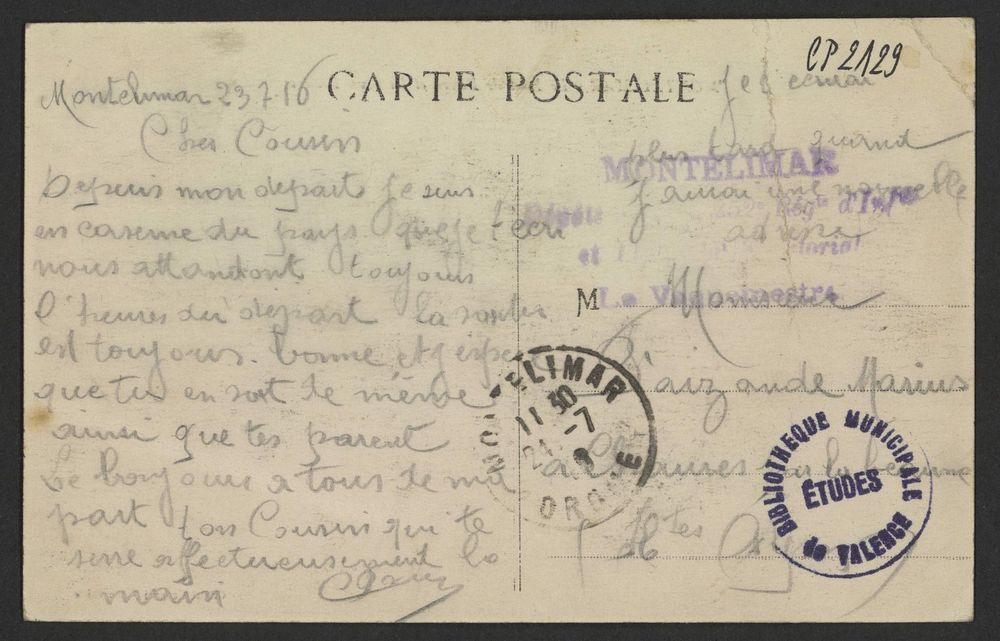 CP2129
CARTE POSTALE
Montelimar 23.7.16
Cher Cousin
Depuis mon depart je suis
en caserne du pays que je t'ecri
nous attandont toujours
l'heures du depart la santer
est toujours bonne et j'espere
que tu en soit de même
ainsi que tes parent
Le bonjours a tous de ma
part ton Cousin qui te
serre affectueusement la
main
Je ecrirai
plus tard quand
j'aurai une nouvelle
adresse
MONTELIMAR
Dépôts Régts d'Infie
et Territorial
Le Vaguemestre
M Monsieur
Marius
a sur la
Htes
MONTELIMAR
11 30
24 -7
DROME
BIBLIOTHEQUE MUNICIPALE
ÉTUDES
de VALENCE